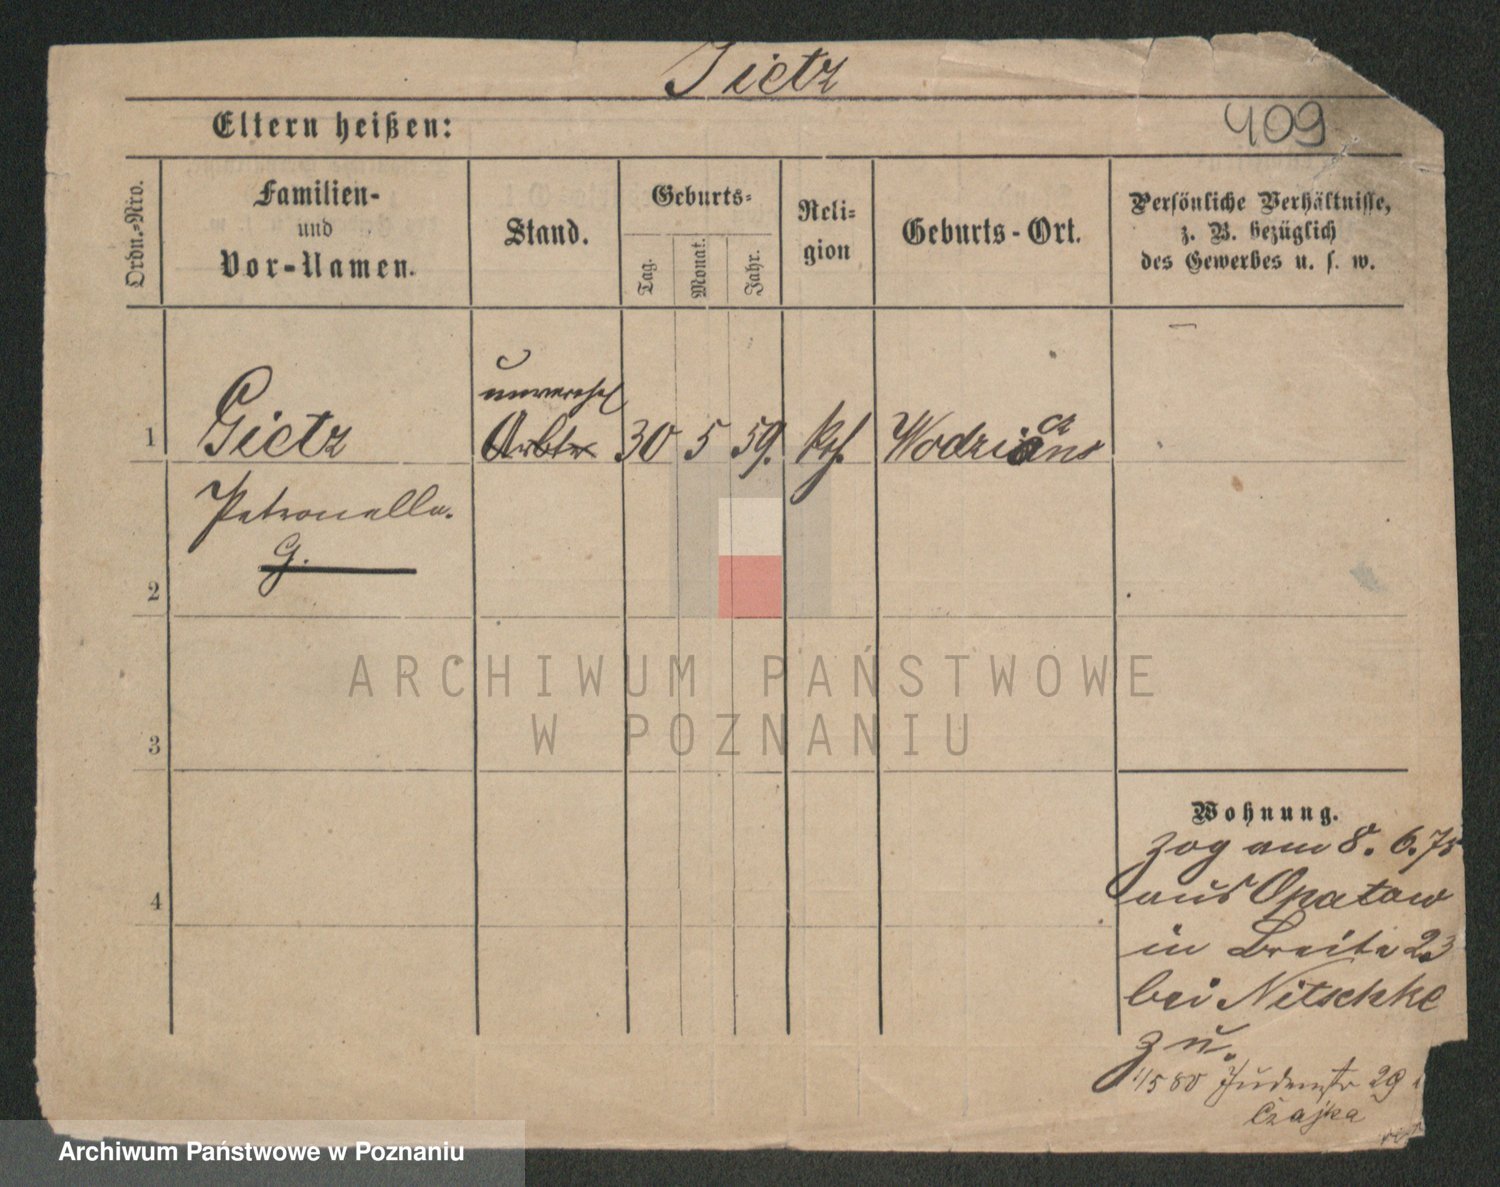 Gietz
409
Eltern heißen:
Ordn.-Nro.
Familien-
und
Vor-Namen.
Stand.
Geburts-
Tag.
Monat.
Jahr.
Reli-
gion
Geburts-Ort.
Persönliche Verhältnisse,
z. B. bezüglich
des Gewerbes u. s. w.
1 Gietz
unverehel
Arbtr 30 5 59. kth.
Petronella.
G.
2
3
4
ARCHIWUM PAŃSTWOWE
W POZNANIU
Wohnung.
zog am 8. 6. 75
aus Opatow
in Breite 23
bei Nitschke
zu.
1/5 80 Judenstr 29
Czajka
Archiwum Państwowe w Poznaniu